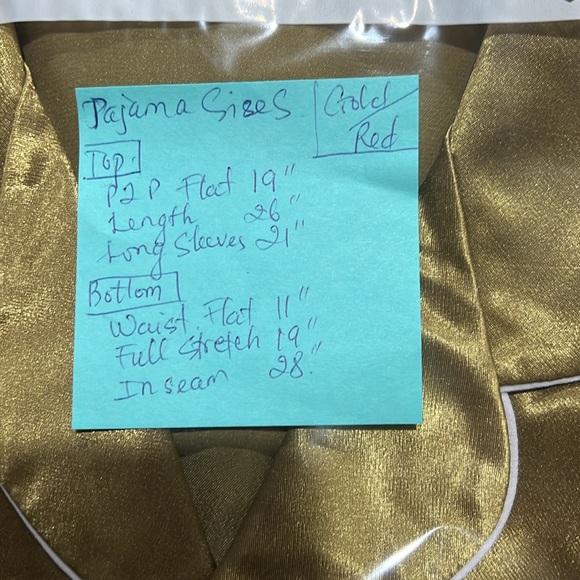 Pajama Sizes
Gold/
Red
Top.
P2P Flat 19"
Length 26"
Long Sleeves 21"
Bottom
Waist Flat 11"
Full Stretch 19"
Inseam 28."